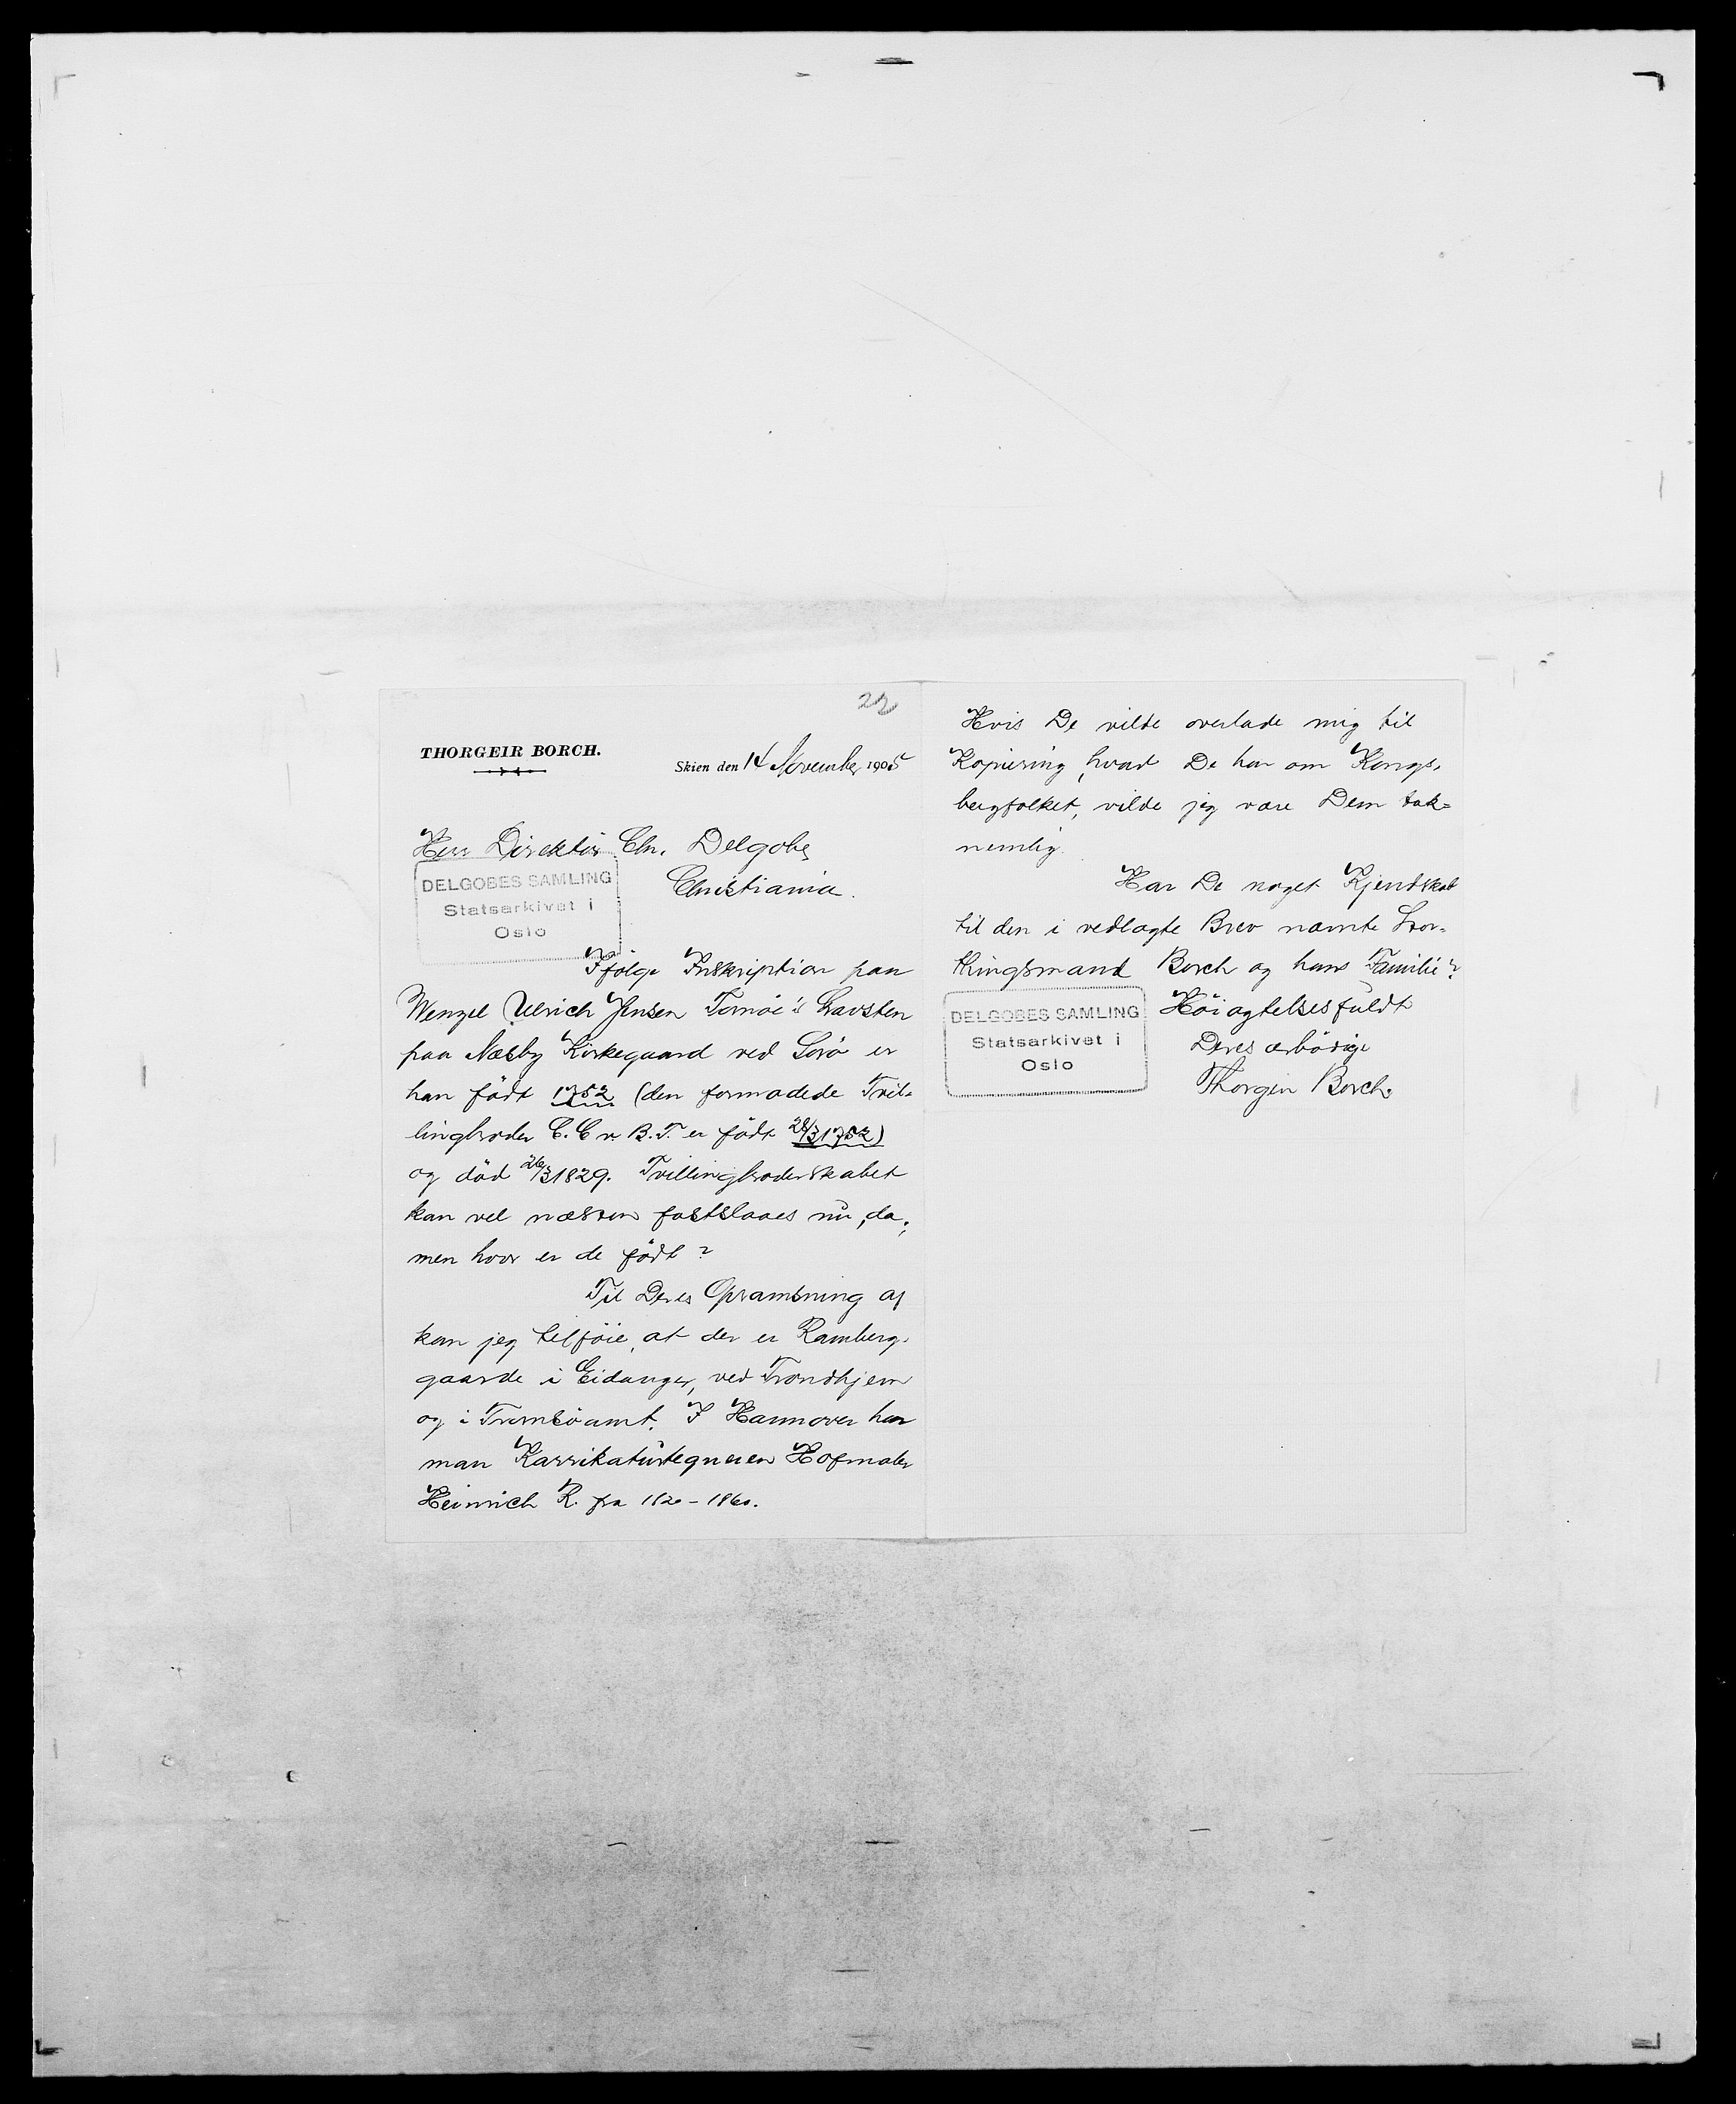 22
THORGEIR BORCH.
Skien den 14 November 1905
Herr Direktör Chr. Delgobe,
Christiania.
DELGOBES SAMLING
Statsarkivet i
Oslo
Ifölge Inskription paa
Wenzel Ulrich Jensen Tornöe's Gravsten
paa Næsby Kirkegaard ved Sorö er
han födt 1752 (den formodede Tvil-
lingbroder C. C v B. T. er födt 28/3 1752)
og död 26/3 1829. Tvillingbroderskabet
kan vel næsten fastslaaes nu, da,
men hvor er de födt?
Til Deres Opramsning af
kan jeg tilföie, at der er Ramberg-
gaarde i Eidanger, ved Trondhjem
og i Tromsö amt. I Hannover har
man Karrikaturtegneren Hofmaler
Heinrich R. fra 1820-1860.
Hvis De vilde overlade mig til
Kopiering, hvad De har om Kongs-
bergfolket, vilde jeg være Dem tak-
nemlig.
Har De noget Kjendskab
til den i vedlagte Brev nævnte Stor-
thingsmand Borch og hans Familie?
Höiagtelsesfuldt
Deres ærbödige
Thorgeir Borch.
DELGOBES SAMLING
Statsarkivet i
Oslo